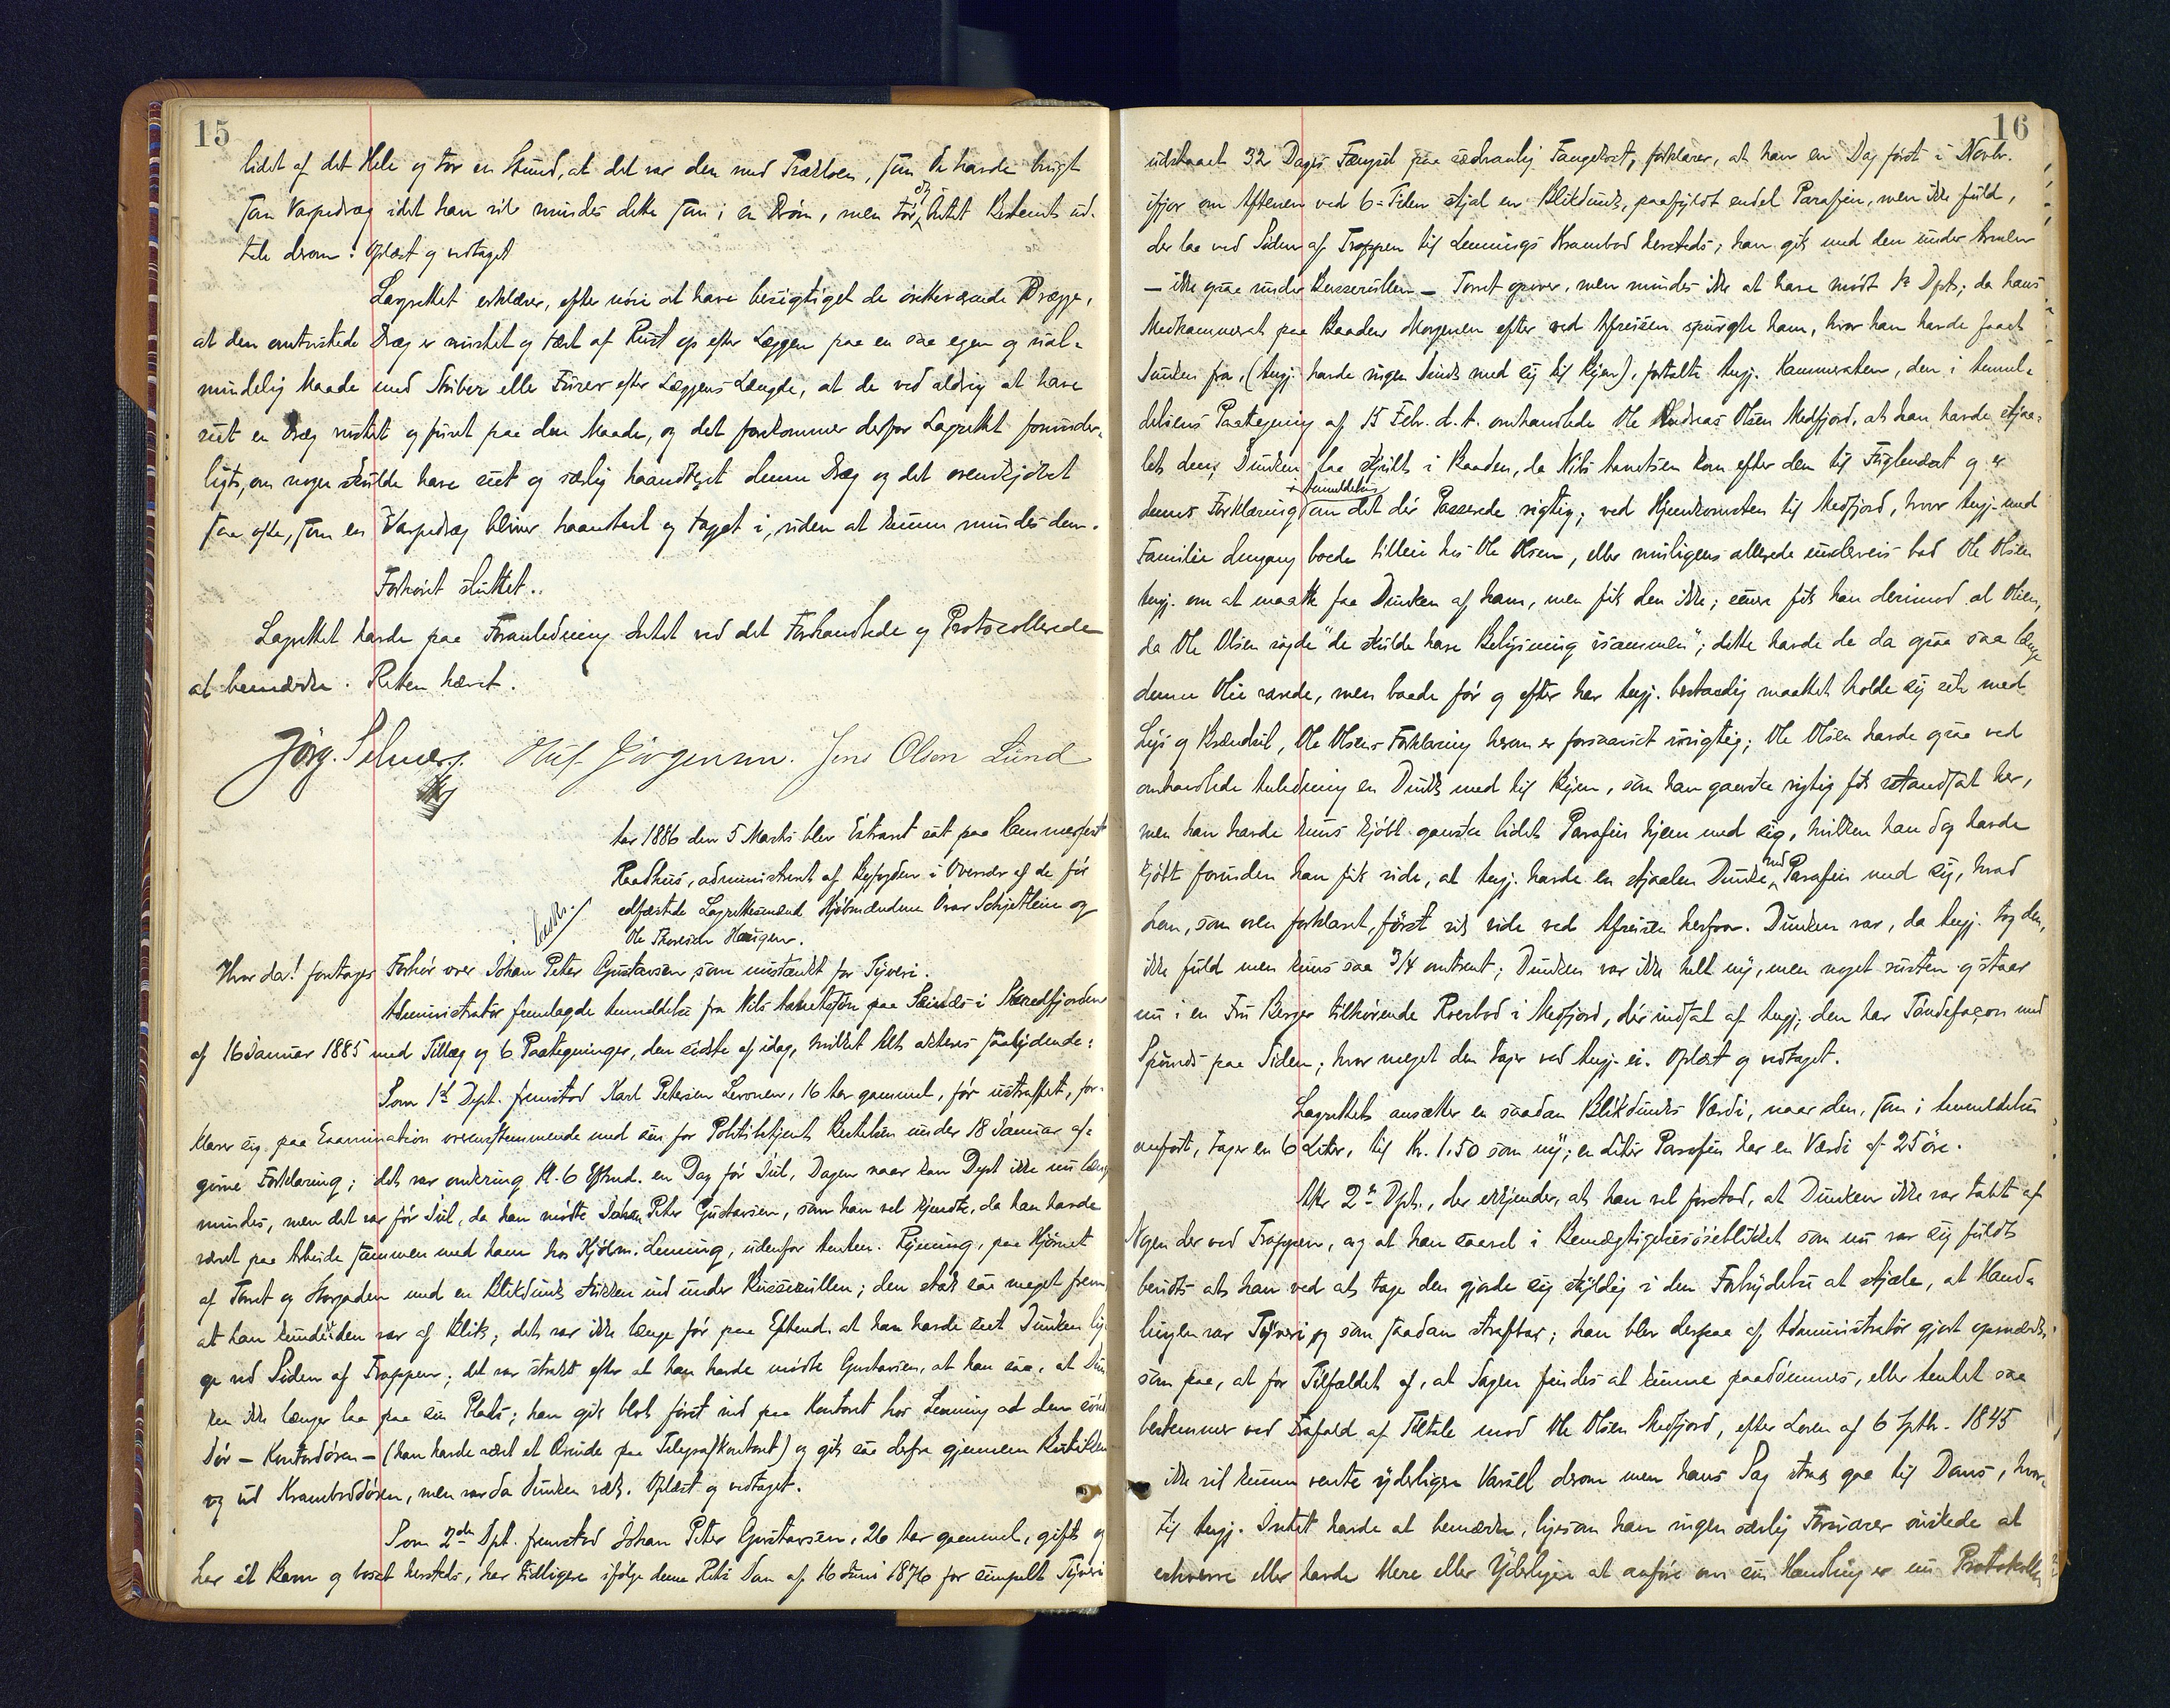 15
lidet af det Hele og tor en Stund, at det var den med Træetsen, som de havde brugt
som Varpedræg idet han vil mindes dette som i en Drøm, men tør dog Intet Bestemt ud-
tale derom! Oplæst og vedtaget
Lagrettet erklærer, efter nøie at have besigtiget de iretteværende Drægge,
at den omtvistede Dræg er rustet og tært af Rust op efter Læggen paa en saa egen og ual-
mindelig Maade med Striber eller Furer efter Læggens Længde, at de ved aldrig at have
seet en Dræg rustet og furet paa den Maade, og det forekommer derfor Lagrettet forunder-
ligt, om nogen skulde have seet og særlig haandteret denne Dræg og det ovenikjøbet
saa ofte, som en Varpedræg bliver haanteret og taget i, uden at kunne mindes den.
Forhøret sluttet..
Lagrettet havde paa Foranledning Intet ved det Forhandlede og Protocollerede
at bemærke. Retten hævet.
Jörg. Selmer Oluf Jörgensen. Jens Olsen Lund
Aar 1886 den 5 Marts blev Extraret sat paa Hammerfest
Raadhus, administreret af Byfogden i Overvær af de før
edfæstede Lagrettesmænd Kjøbmændene Ovar Schjetlein og
Ole Thoresen Haugen.
Hvor da! foretages Forhør over Johan Peter Gustavsen som mistænkt for Tyveri.
Administrator fremlagde Anmeldelse fra Nils i
af 16 Januar 1885 med Tillæg og 6 Paategninger, den sidste af idag, hvilket Alt akteres saalydende:
Som 1ste Dept. fremstod Karl Petersen Levonen, 16 Aar gammel, før ustraffet, for-
klarer sig paa Examination overensstemmende med sin for Politibetjent under 18 Januar af-
givne Forklaring; det var omkring Kl. 6 Eftmd. en Dag før Jul, Dagen naar kan Dept ikke nu længer
mindes, men det var før Jul, da han mødte Johan Peter Gustavsen, som han vel kjendte, da han havde
været paa Arbeide sammen med ham hos Kjøbm. Lenning, udenfor paa Hjørnet
af Torvet og Storgaden med en Blikdunk stukken ind under Busserullen; den stak saa meget frem
at han kunde se den var af Blik; det var ikke længe før paa Eftmd. at han havde seet Dunken lig-
ge ved Siden af Trappen; det var strakt efter at han havde mødte Gustavsen, at han saa, at Dun-
ken ikke længer laa paa sin Plads; han gik blot først ind paa Kontoret hos Lenning ad den
Dør – Kontordøren – (han havde været et Ærinde paa Telegrafkontoret) og gik saa derfra gjennem Butikken
og ud Kramboddøren, men var da Dunken væk. Oplæst og vedtaget.
Som 2den Dpt. fremstod Johan Peter Gustavsen, 26 Aar gammel, gift og
har et Barn og bosat hersteds, har tidligere ifølge denne Rets Dom af 16 Juni 1876 for simpelt Tyveri
16
udstaaet 32 Dages Fængsel paa sædvanlig Fangekost, forklarer, at han en Dag først i Novbr.
ifjor om Aftenen ved 6-Tiden stjal en Blikdunk, paafyldt endel Parafin, men ikke fuld,
der laa ved Siden af Trappen til Lennings Krambod hersteds; han gik med den under Armen
– ikke ogsaa under Busserullen – Torvet opover, men mindes ikke at have mødt 1ste Dpt; da hans
Medkammerat paa Baaden Morgenen efter ved Afreisen spurgte ham, hvor han havde faaet
Dunken fra, (Angj. havde ingen Dunk med sig til Byen), fortalte Angj. Kammeraten, den i Anmel-
delsens Paategning af 15 Febr. d. A. omhandlede Ole Andreas Olsen Medfjord, at han havde stjaa-
let den; Dunken laa skjult i Baaden, da Nils kom efter den til Fuglenæst og er
dennes Forklaring i Anmeldelsen om det dér Passerede rigtig; ved Hjemkomsten til Medfjord, hvor Angj. med
Familie dengang boede tilleie hos Ole Olsen, eller muligens allerede underveis bad Ole Olsen
Angj. om at maatte faa Dunken af ham, men fik den ikke; senere fik han derimod al Olien,
da Ole Olsen sagde "de skulde have Belysning isammen"; dette havde de da ogsaa saa længe
denne Olie varede, men baade før og efter har Angj. bestandig maattet holde sig selv med
Lys og Brændsel, Ole Olsens Forklaring herom er forsaavidt urigtig; Ole Olsen havde ogsaa ved
omhandlede Anledning en Dunk med til Byen, som han ganske rigtig fik istandsat her,
men han havde kuns kjøbt ganske lidet Parafin hjem med sig, hvilken han dog havde
kjøbt forinden han fik vide, at Angj. havde en stjaalen Dunke med Parafin med sig, hvad
han, som oven forklaret, først fik vide ved Afreisen herfra. Dunken var, da Angj. tog den,
ikke fuld men kuns saa 3/4 omtrent; Dunken var ikke helt ny, men noget rusten og staar
nu i en Fru Berger tilhørende Roerbod i Medfjord, dér indsat af Angj; den har Tøndefaçon med
Spunds paa Siden; hvor meget den tager ved Angj. ei. Oplæst og vedtaget.
Lagrettet ansætter en saadan Blikdunks Værdi, naar den, som i Anmeldelsen
anført, tager en 6 Liter, til Kr. 1.50 som ny; en Liter Parafin har en Værdi af 25 øre.
Atter 2den Dpt., der erkjender, at han vel forstod, at Dunken ikke var tabt af
Nogen der ved Trappen, og at han saavel i Bemægtigelsesøieblikket som nu var sig fuldt
bevidst at han ved at tage den gjorde sig skyldig i den Forbrydelse at stjæle, at Hand-
lingen var Tyveri og som saadan strafbar; han blev derpaa af Administrator gjort opmærk-
som paa, at for Tilfældet af, at Sagen findes at kunne paadømmes, eller Amtet saa
bestemmer ved Frafald af Tiltale mod Ole Olsen Medfjord, efter Loven af 6 Sptbr. 1845
ikke vil kunne vente yderligere Varsel derom men hans Sag strax gaa til Doms, hvor-
til Angj. Intet havde at bemærke, ligesom han ingen særlig Forsvarer ønskede at
erhverve eller havde Mere eller Yderligere at anføre om sin Handling er nu Protokollen